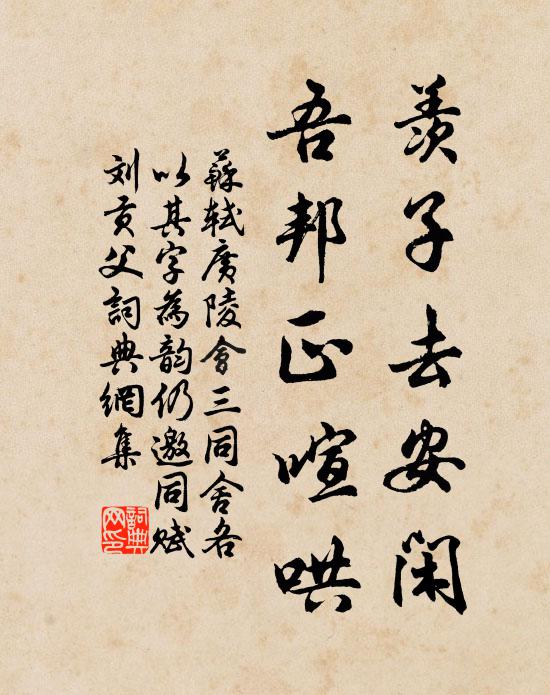 羨子去安閑
吾邦正喧哄
蘇軾廣陵會三同舍各
以其字為韵仍邀同賦
刘貢父詞典網集
詞典网印